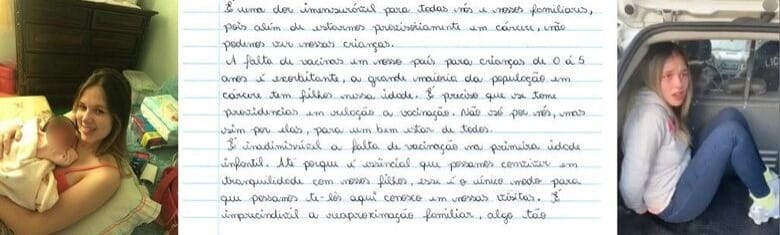 É uma dor imensurável para todas nós e nossos familiares,
pois além de estarmos provisoriamente em cárcere, não
podemos ver nossas crianças.
A falta de vacinas em nosso país para crianças de 0 á 5
anos é exorbitante, a grande maioria da população em
cárcere tem filhos nessa idade. É preciso que se tome
providencias em relação a vacinação. Não só por nós, mas
sim por elas, para um bem estar de todos.
É inadimissível a falta de vacinação na primeira idade
infantil. Até porque é essêncial que possamos conviver em
tranquilidade com nossos filhos, esse é o único modo para
que possamos te-lós aqui conosco em nossas visitas. É
imprecindível a reaproximação familiar, algo tão